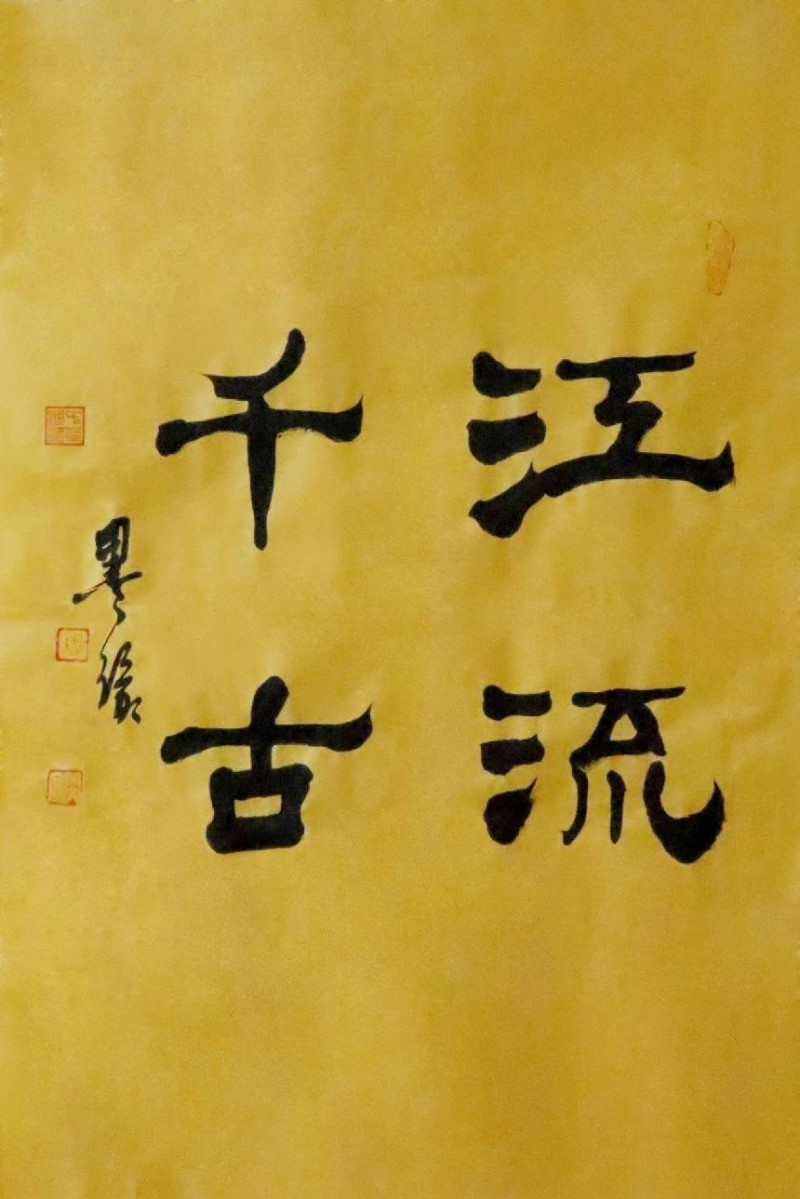 江流
千古